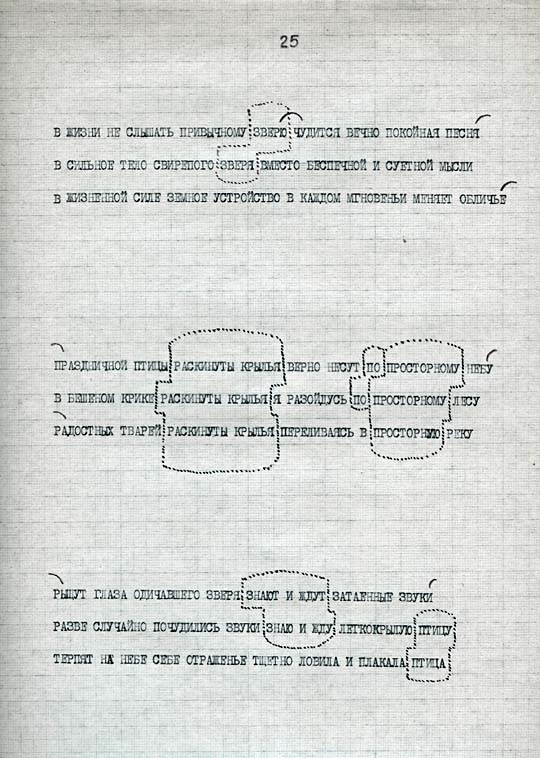 25
В ЖИЗНИ НЕ СЛЫШАТЬ ПРИВЫЧНОМУ ЗВЕРЮ ЧУДИТСЯ ВЕЧНО ПОКОЙНАЯ ПЕСНЯ
В СИЛЬНОЕ ТЕЛО СВИРЕПОГО ЗВЕРЯ ВМЕСТО БЕСПЕЧНОЙ И СУЕТНОЙ МЫСЛИ
В ЖИЗНЕННОЙ СИЛЕ ЗЕМНОЕ УСТРОЙСТВО В КАЖДОМ МГНОВЕНЬИ МЕНЯЕТ ОБЛИЧЬЕ
ПРАЗДНИЧНОЙ ПТИЦЫ РАСКИНУТЫ КРЫЛЬЯ ВЕРНО НЕСУТ ПО ПРОСТОРНОМУ НЕБУ
В БЕШЕНОМ КРИКЕ РАСКИНУТЫ КРЫЛЬЯ Я РАЗОЙДУСЬ ПО ПРОСТОРНОМУ ЛЕСУ
РАДОСТНЫХ ТВАРЕЙ РАСКИНУТЫ КРЫЛЬЯ ПЕРЕЛИВАЯСЬ В ПРОСТОРНУЮ РЕКУ
РЫЩУТ ГЛАЗА ОДИЧАВШЕГО ЗВЕРЯ ЗНАЮТ И ЖДУТ ЗАТАЕННЫЕ ЗВУКИ
РАЗВЕ СЛУЧАЙНО ПОЧУДИЛИСЬ ЗВУКИ ЗНАЮ И ЖДУ ЛЕГКОКРЫЛУЮ ПТИЦУ
ТЕРПЯТ НА НЕБЕ СЕБЕ ОТРАЖЕНЬЕ ТЩЕТНО ЛОВИЛА И ПЛАКАЛА ПТИЦА